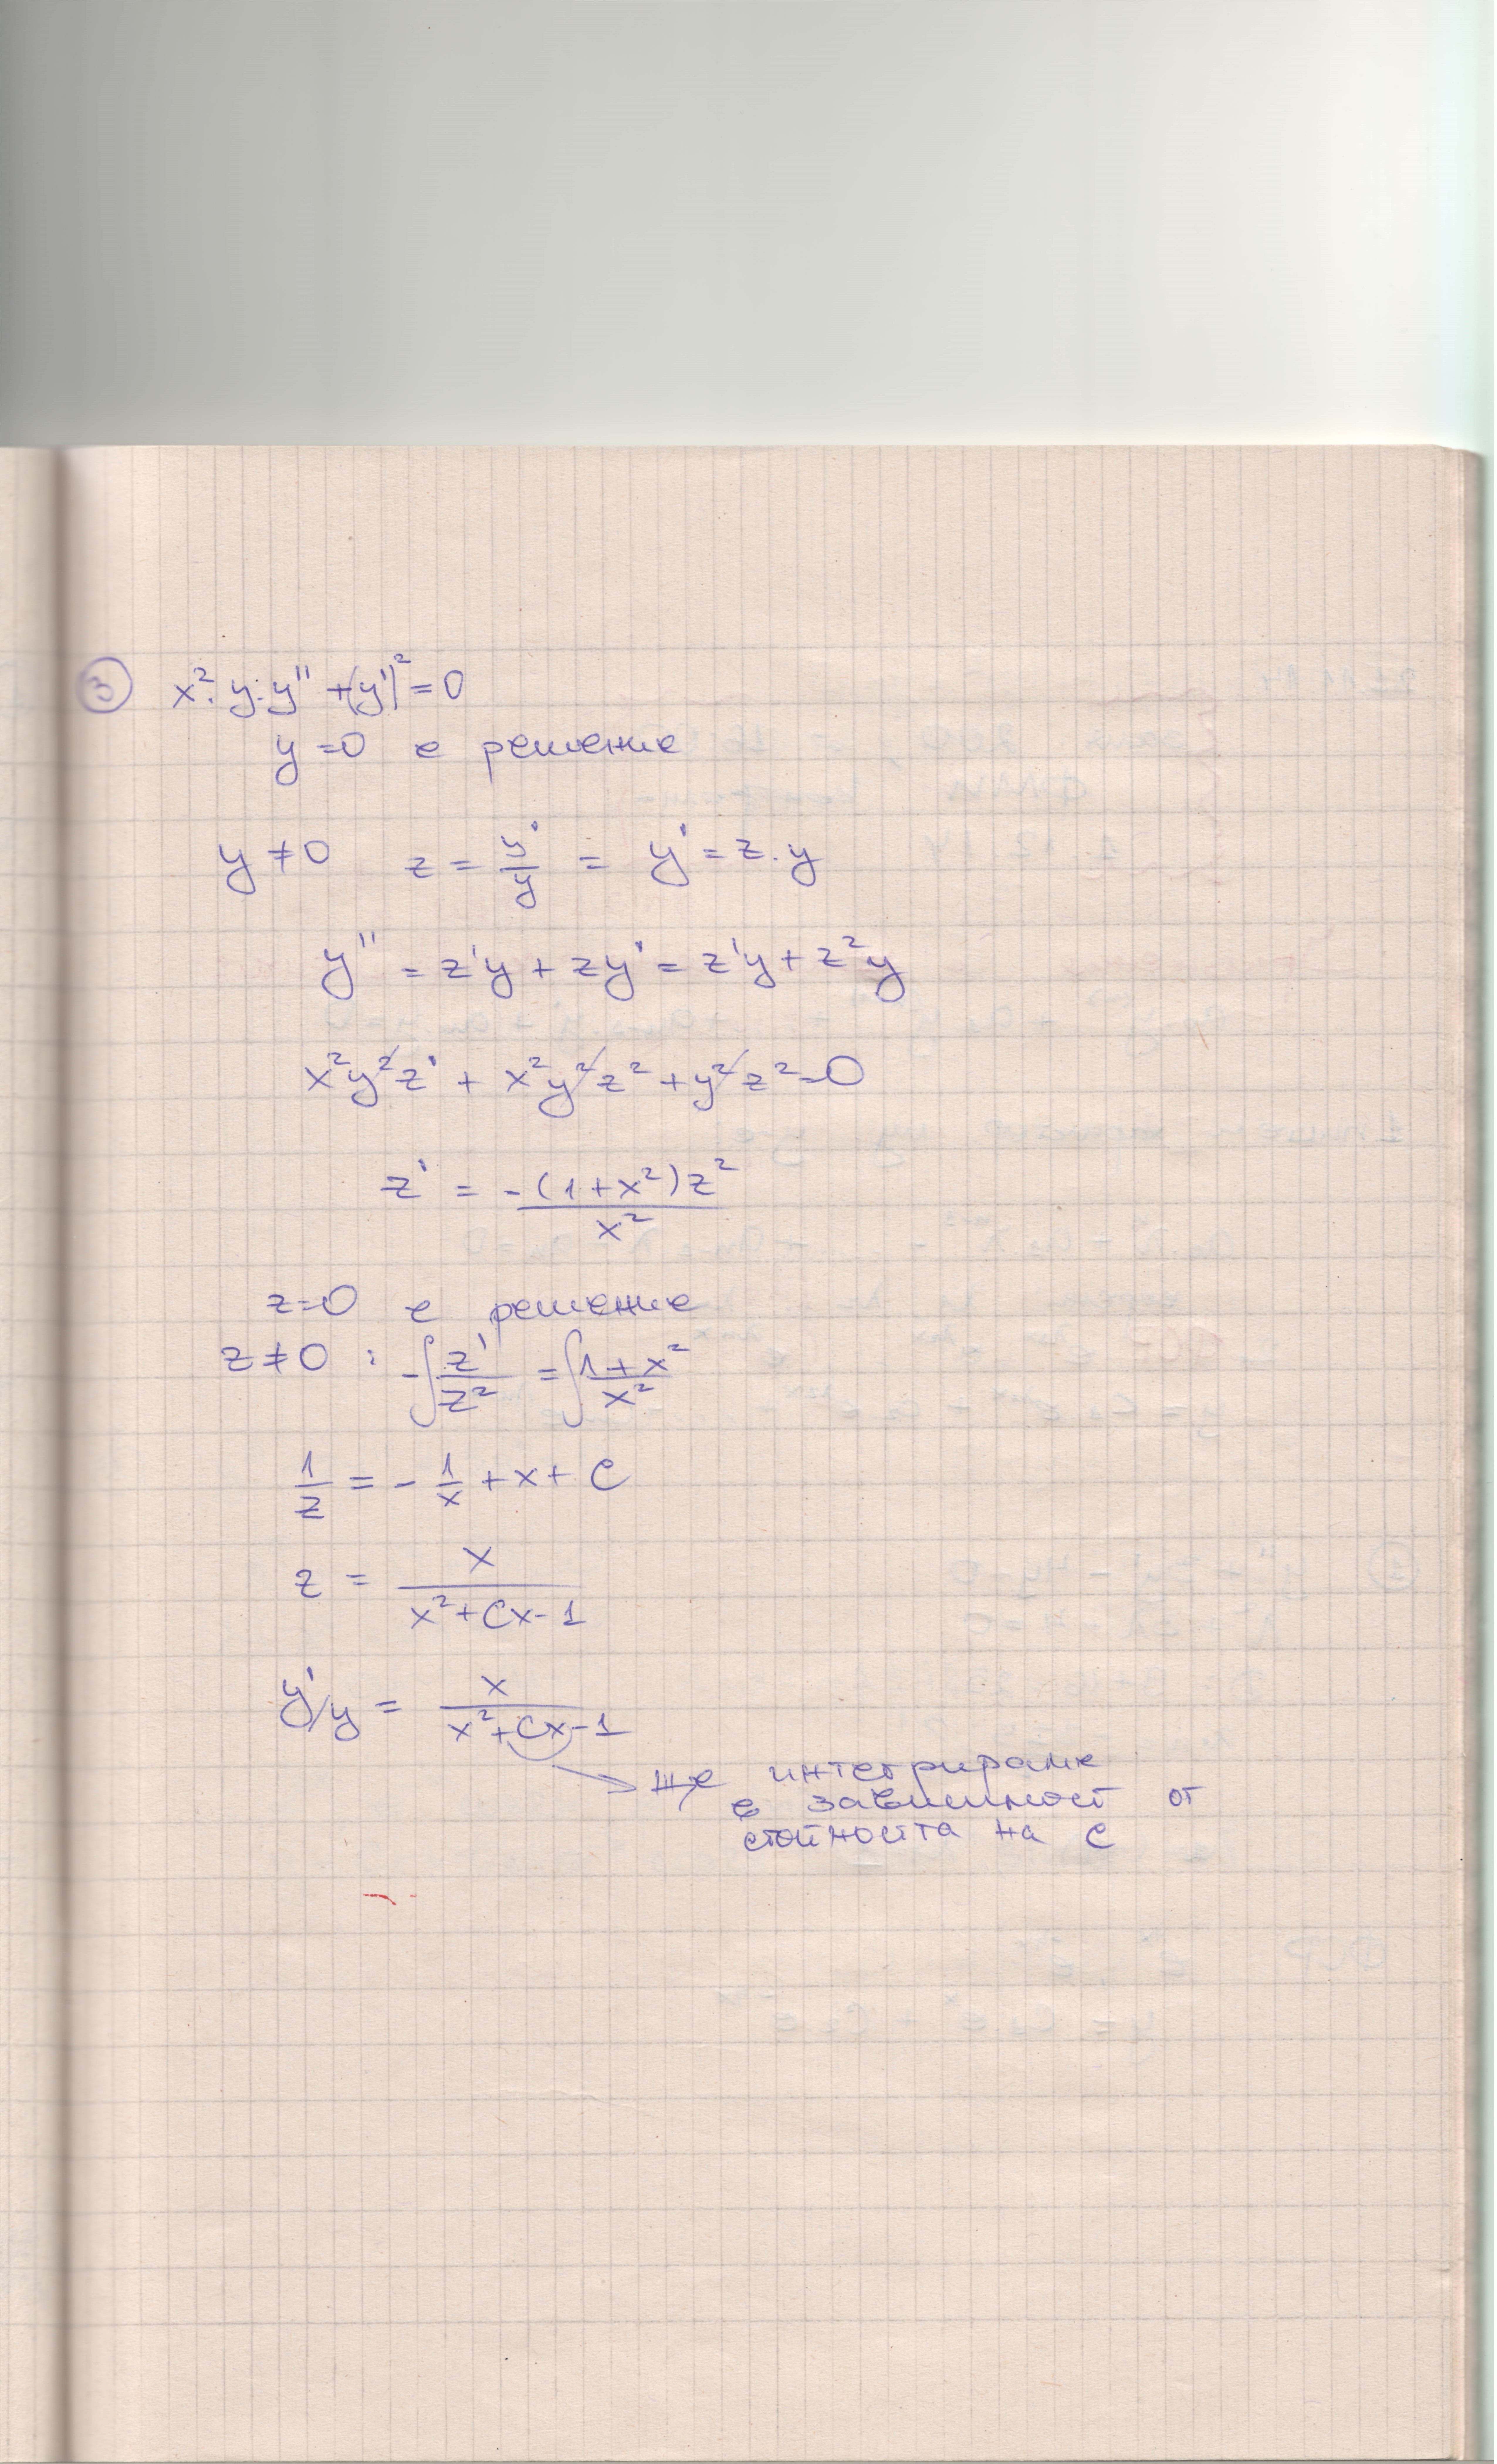 ③ x²·y·y'' + (y')² = 0
y = 0 е решение
y ≠ 0 z = y'/y = y' = z.y
y'' = z'y + zy' = z'y + z²y
x²y²z' + x²y²z² + y²z² = 0
z' = -(1+x²)z² / x²
z = 0 е решение
z ≠ 0 : -∫ z'/z² = ∫ 1+x² / x²
1/z = - 1/x + x + C
z = x / x²+Cx-1
y'/y = x / x²+Cx-1
ще интегрираме
в зависимост от
стойността на C